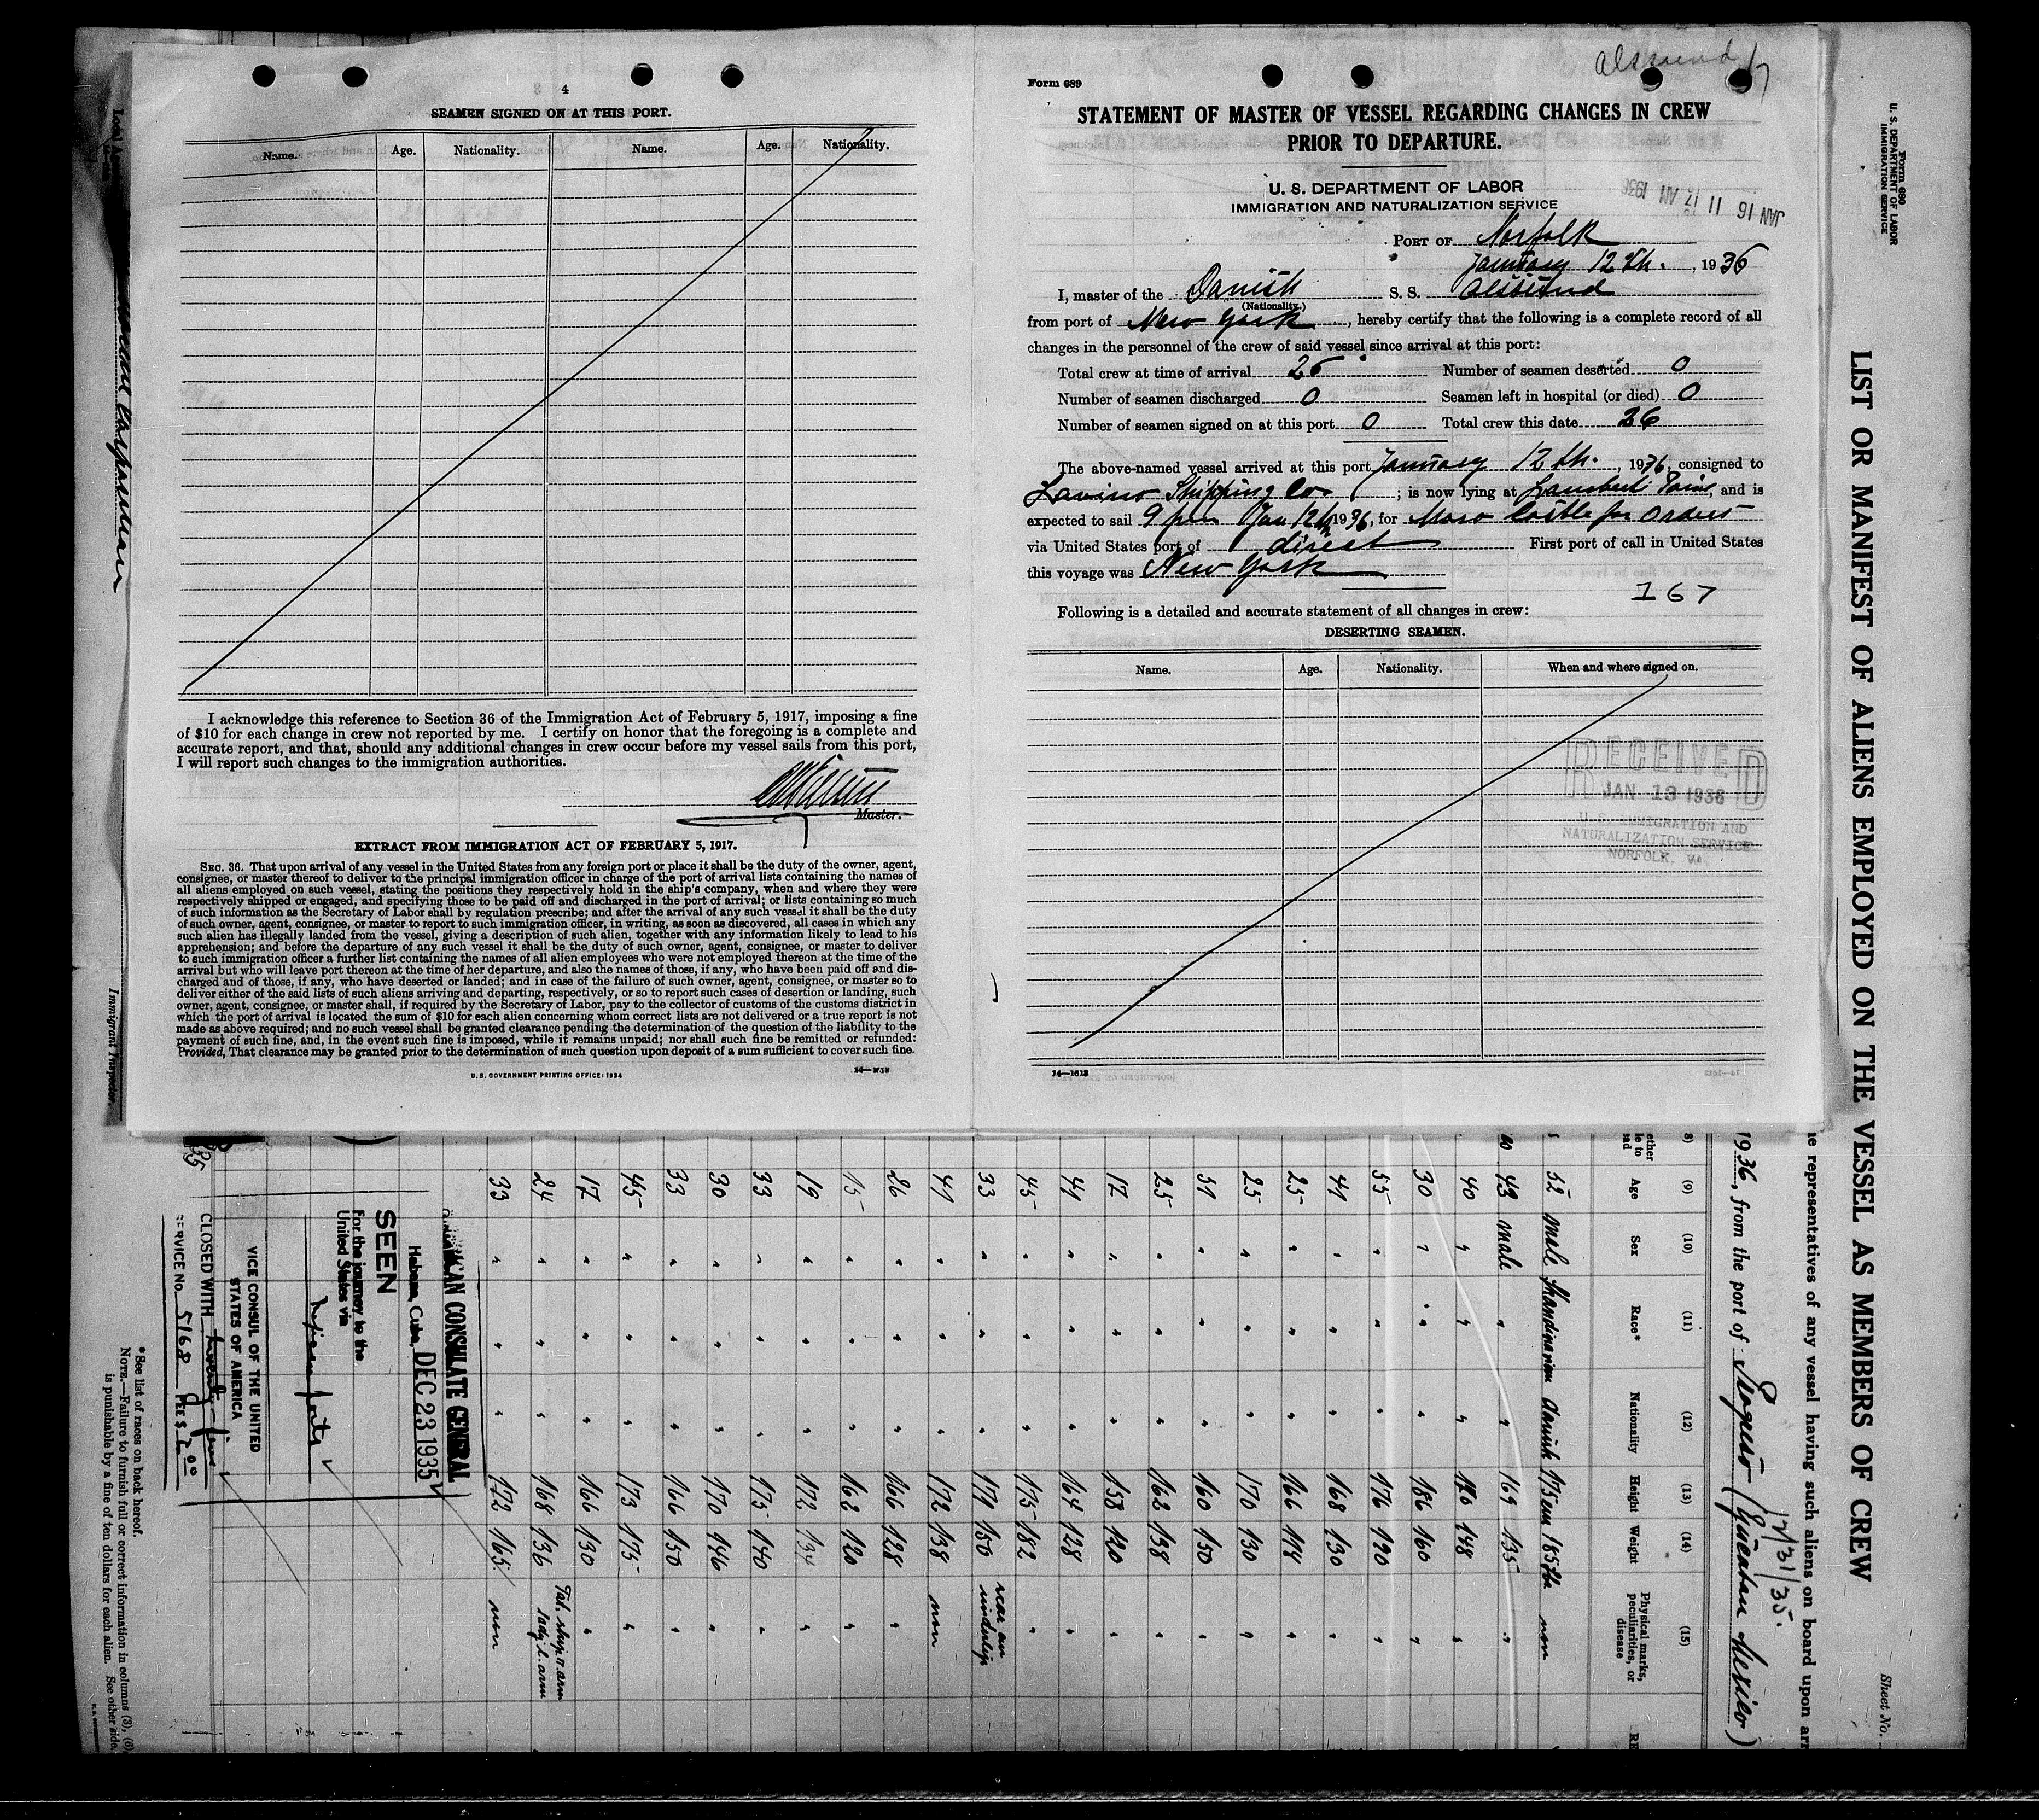 4
SEAMEN SIGNED ON AT THIS PORT.
Name. Age. Nationality. Name. Age. Nationality.
I acknowledge this reference to Section 36 of the Immigration Act of February 5, 1917, imposing a fine
of $10 for each change in crew not reported by me. I certify on honor that the foregoing is a complete and
accurate report, and that, should any additional changes in crew occur before my vessel sails from this port,
I will report such changes to the immigration authorities.
Master.
EXTRACT FROM IMMIGRATION ACT OF FEBRUARY 5, 1917.
SEC. 36. That upon arrival of any vessel in the United States from any foreign port or place it shall be the duty of the owner, agent,
consignee, or master thereof to deliver to the principal immigration officer in charge of the port of arrival lists containing the names of
all aliens employed on such vessel, stating the positions they respectively hold in the ship's company, when and where they were
respectively shipped or engaged, and specifying those to be paid off and discharged in the port of arrival; or lists containing so much
of such information as the Secretary of Labor shall by regulation prescribe; and after the arrival of any such vessel it shall be the duty
of such owner, agent, consignee, or master to report to such immigration officer, in writing, as soon as discovered, all cases in which any
such alien has illegally landed from the vessel, giving a description of such alien, together with any information likely to lead to his
apprehension; and before the departure of any such vessel it shall be the duty of such owner, agent, consignee, or master to deliver
to such immigration officer a further list containing the names of all alien employees who were not employed thereon at the time of the
arrival but who will leave port thereon at the time of her departure, and also the names of those, if any, who have been paid off and dis-
charged and of those, if any, who have deserted or landed; and in case of the failure of such owner, agent, consignee, or master so to
deliver either of the said lists of such aliens arriving and departing, respectively, or so to report such cases of desertion or landing, such
owner, agent, consignee, or master shall, if required by the Secretary of Labor, pay to the collector of customs of the customs district in
which the port of arrival is located the sum of $10 for each alien concerning whom correct lists are not delivered or a true report is not
made as above required; and no such vessel shall be granted clearance pending the determination of the question of the liability to the
payment of such fine, and, in the event such fine is imposed, while it remains unpaid; nor shall such fine be remitted or refunded:
Provided, That clearance may be granted prior to the determination of such question upon deposit of a sum sufficient to cover such fine.
U.S. GOVERNMENT PRINTING OFFICE: 1934
Alssund
Form 689
STATEMENT OF MASTER OF VESSEL REGARDING CHANGES IN CREW
PRIOR TO DEPARTURE.
U. S. DEPARTMENT OF LABOR
IMMIGRATION AND NATURALIZATION SERVICE
JAN 16 11 17 AM 1936
PORT OF Norfolk
January 12th. , 1936
I, master of the Danish S. S. Alssund
(Nationality)
from port of New York, hereby certify that the following is a complete record of all
changes in the personnel of the crew of said vessel since arrival at this port:
Total crew at time of arrival 26 Number of seamen deserted 0
Number of seamen discharged 0 Seamen left in hospital (or died) 0
Number of seamen signed on at this port 0 Total crew this date 26
The above-named vessel arrived at this port January 12th. , 1936, consigned to
Lavino Shipping Co ; is now lying at Lamberts Point, and is
expected to sail 9 pm Jan 12th 1936, for Moro Castle for orders
via United States port of direct First port of call in United States
this voyage was New York
167
Following is a detailed and accurate statement of all changes in crew:
DESERTING SEAMEN.
Name. Age. Nationality. When and where signed on.
RECEIVED
JAN 13 1936
U.S. IMMIGRATION AND
NATURALIZATION SERVICE
NORFOLK, VA.
14—1613
Form 680
U. S. DEPARTMENT OF LABOR
IMMIGRATION SERVICE
LIST OR MANIFEST OF ALIENS EMPLOYED ON THE VESSEL AS MEMBERS OF CREW
Sheet No.
representatives of any vessel having such aliens on board upon arr
12/31/35.
1936, from the port of Progreso (Yucatan Mexico)
(9) (10) (11) (12) (13) (14) (15)
Age Sex Race* Nationality Height Weight Physical marks, peculiarities, or disease
52 male Skandinavian danish 175cm 185lbs non
43 male " " 169 135 "
40 " " " 170 148 "
30 " " " 186 160 "
55 " " " 176 190 "
41 " " " 168 130 "
25 " " " 166 "
25 " " " 170 130 "
" " " 160 150 "
25 " " " 162 138 "
17 " " " 158 120 "
41 " " " 164 128 "
45 " " " 175 182 "
33 " " " 150 scar on underlip
41 " " " 172 138 non
26 " " " 166 128 "
" " " 162 120 "
19 " " " 172 134 "
33 " " " 175 140 "
30 " " " 170 146 "
33 " " " 166 150 "
45 " " " 173 175 "
17 " " " 166 130 "
24 " " " 168 136 Tat. ship r. arm lady l. arm
33 " " " 172 165 non
AMERICAN CONSULATE GENERAL
Habana, Cuba, DEC 23 1935
SEEN
For the journey to the
United States via
VICE CONSUL OF THE UNITED
STATES OF AMERICA
CLOSED WITH twenty-five
SERVICE No. 5168 FEE $ 2.00
*See list of races on back hereof.
NOTE.—Failure to furnish full or correct information in columns (3), (6),
is punishable by a fine of ten dollars for each alien. See other side.
Immigrant Inspector.